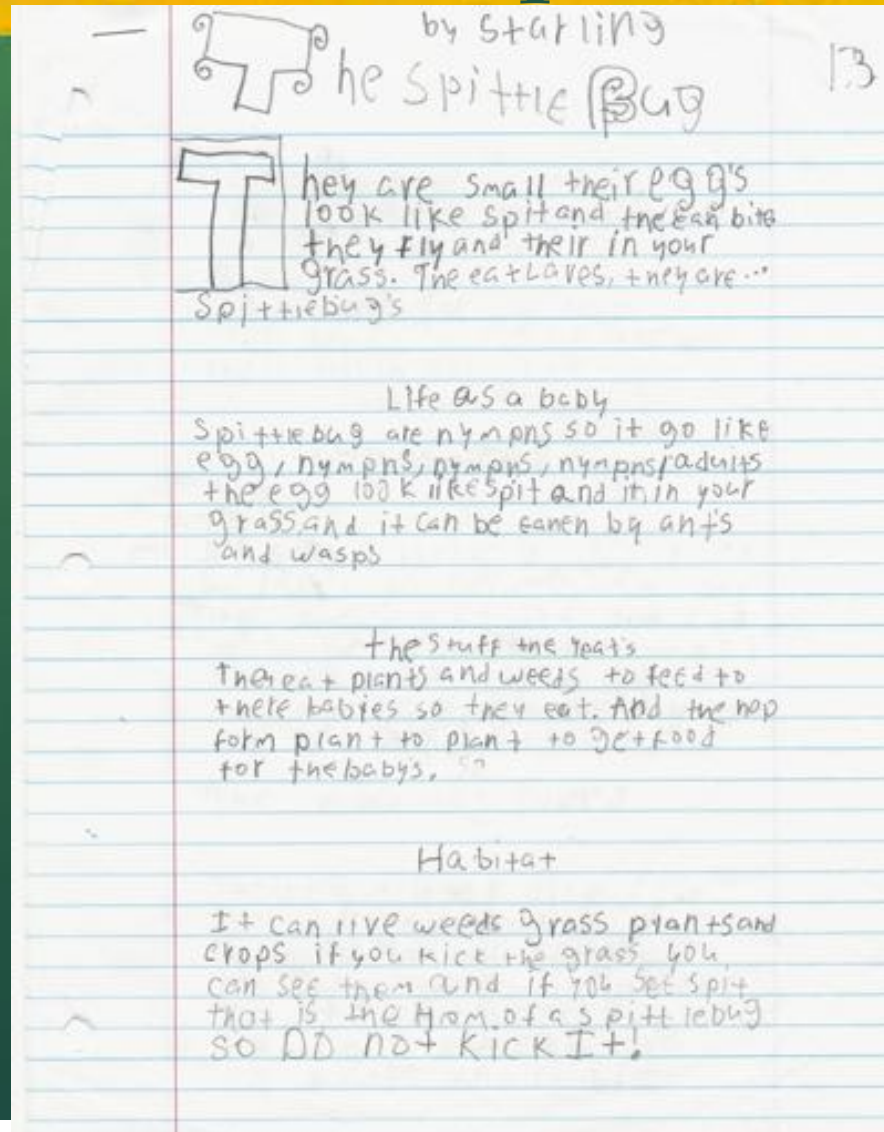 by Starling
The Spittle Bug
13
They are small their egg's
look like spit and the can bite
they fly and their in your
grass. The eat Laves, they are...
Spittlebug's
Life as a baby
Spittlebug are nymphs so it go like
egg, nymphs, nymphs, nymphs, adults
the egg look like spit and it in your
grass, and it can be eaten by ants
and wasps
the stuff the yeat's
There eat plants and weeds to feed to
there babies so they eat. And the hop
form plant to plant to get food
for the babys.
Habitat
It can live weeds grass plants and
crops if you kick the grass you
can see them and if you see spit
that is the Hom. of a spittlebug
so DO not kick It!